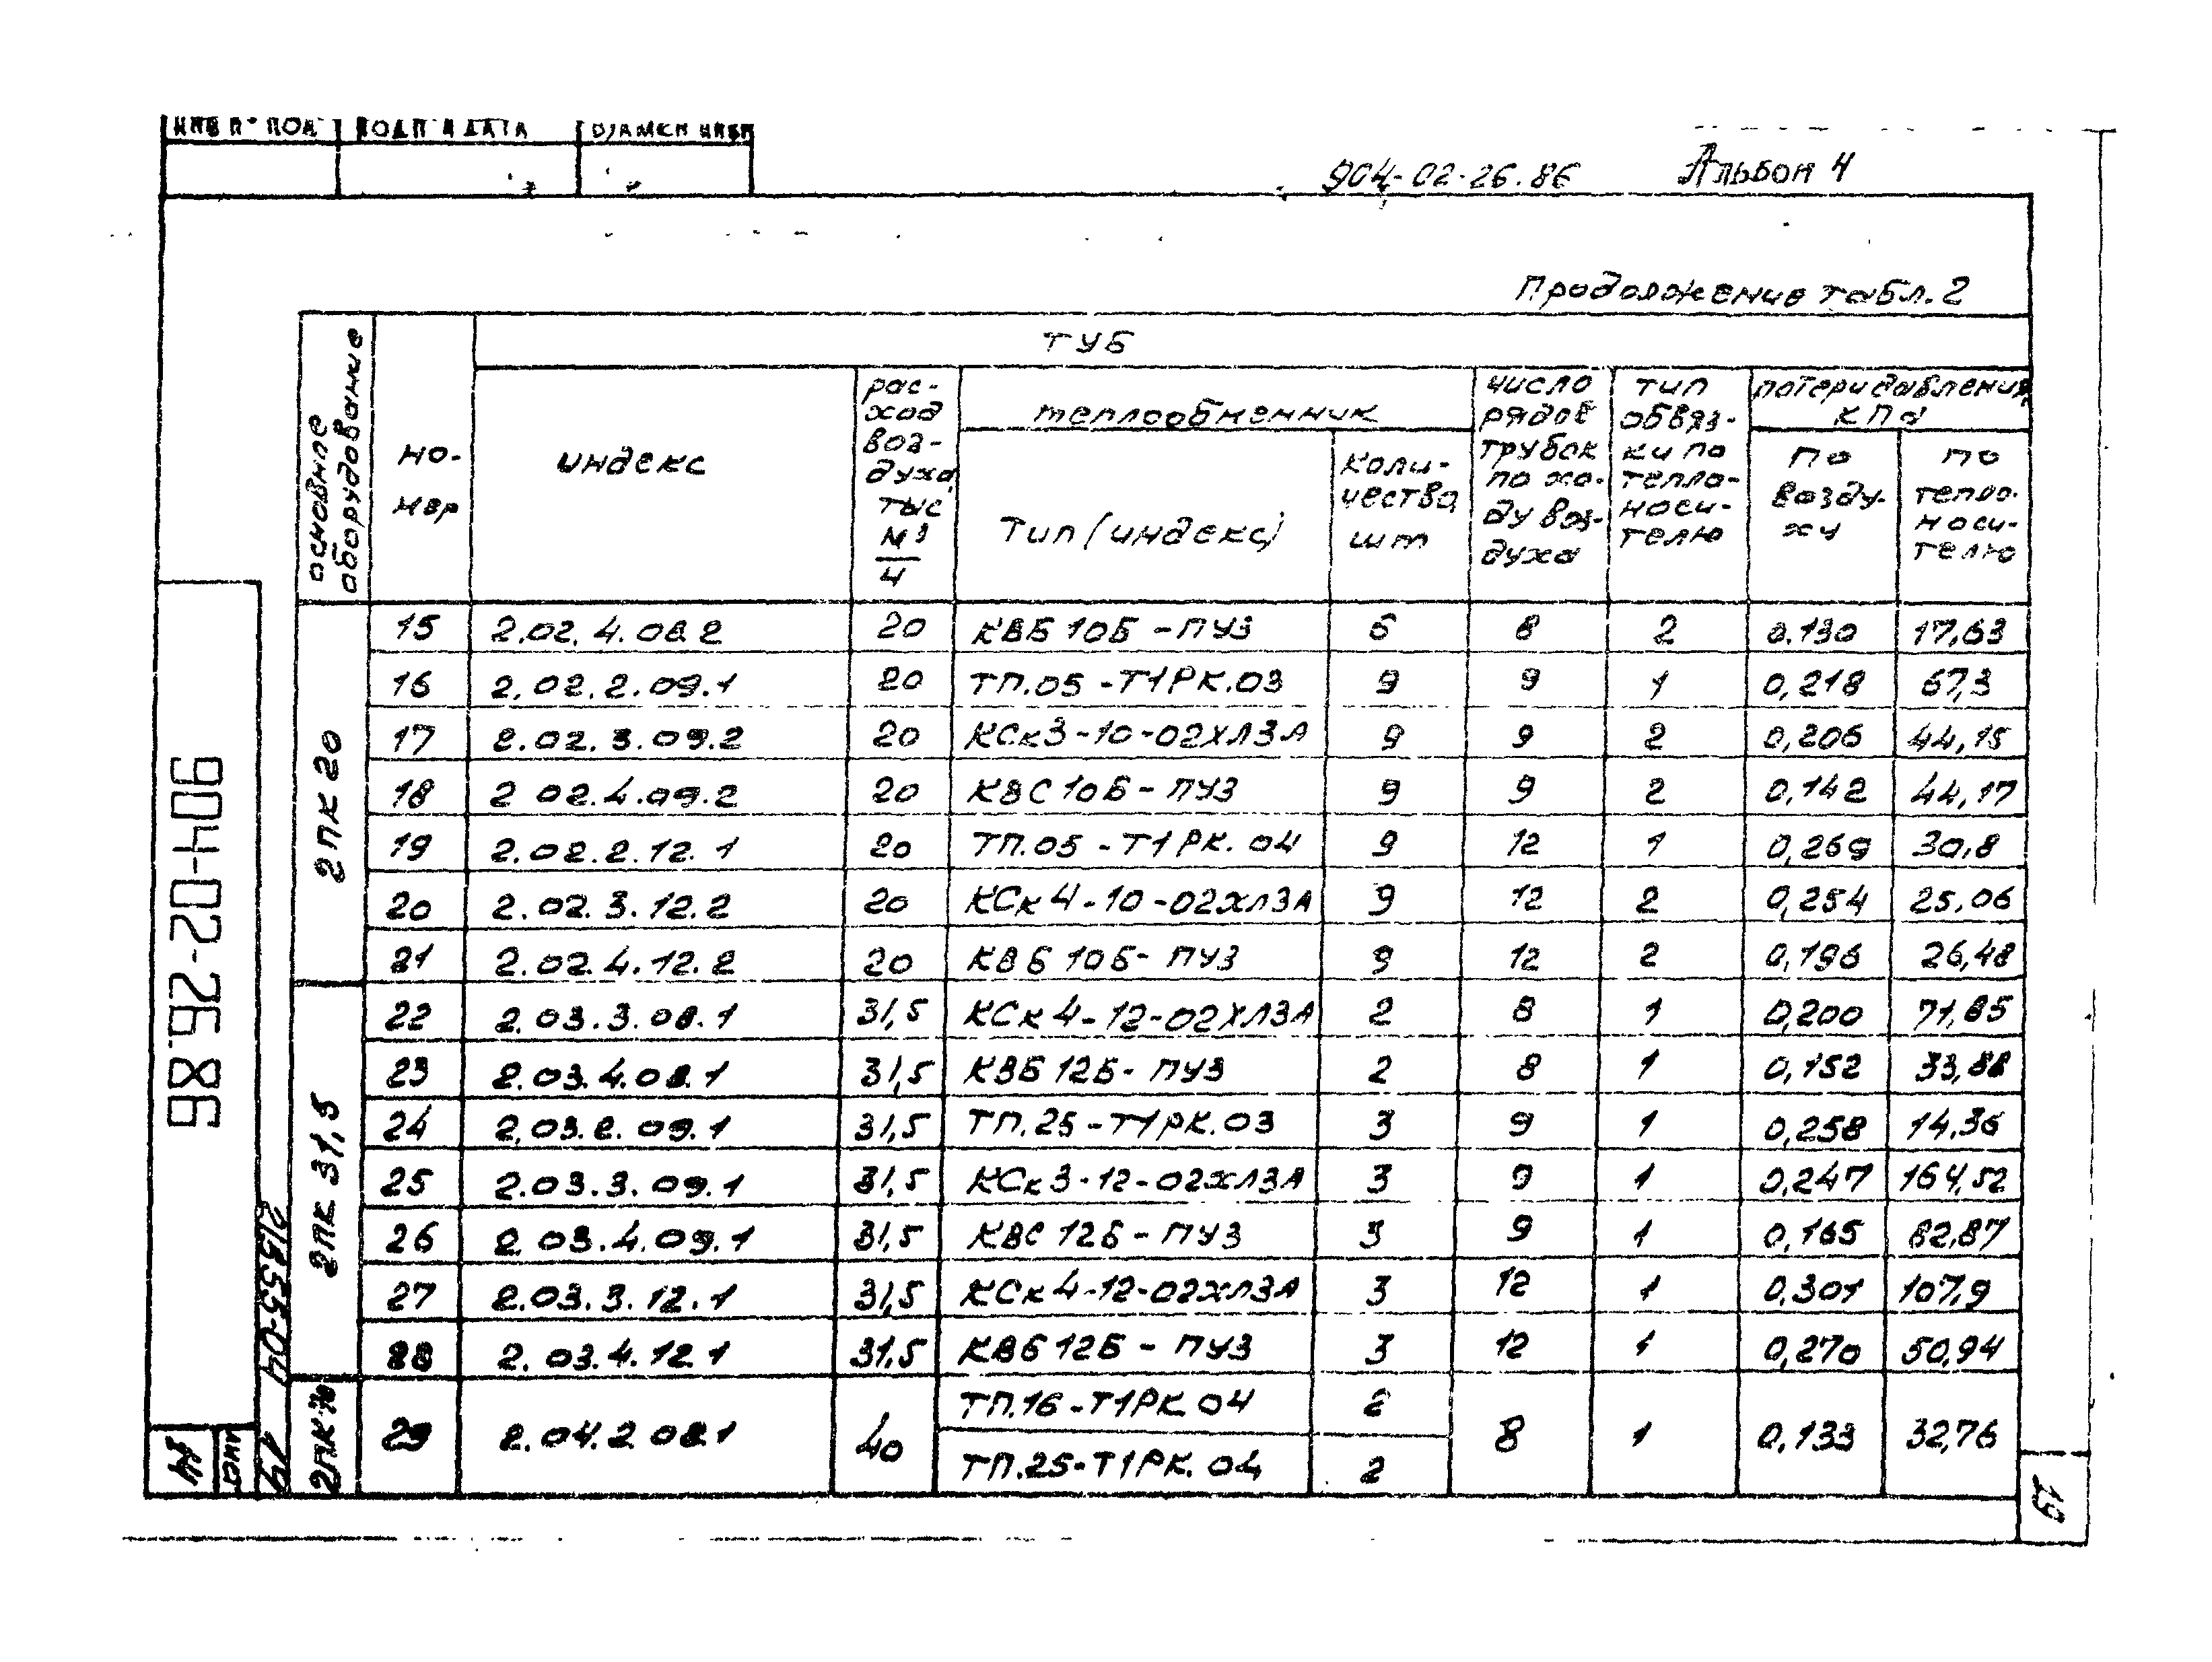 ИНВ № ПОД ПОДП И ДАТА ВЗАМЕН ИНВ№
904-02-26.86 Альбом 4
Продолжение табл. 2
основные оборудование
но-
мер
ТУБ
индекс
рас-
ход
воз-
духа,
тыс
м³
ч
теплообменник
Тип (индекс)
коли-
чество,
шт
число
рядов
трубок
по хо-
ду воз-
духа
тип
обвяз-
ки по
тепло-
носи-
телю
потери давления,
кПа
по
возду-
ху
по
тепло-
носи-
телю
2ПК 20
15 2.02.4.08.2 20 КВБ 10Б-ПУЗ 6 8 2 0.130 17,63
16 2.02.2.09.1 20 ТП.05-Т1РК.03 9 9 1 0,218 67,3
17 2.02.3.09.2 20 КСк3-10-02ХЛ3А 9 9 2 0,206 44,15
18 2 02.4.09.2 20 КВС 10Б-ПУЗ 9 9 2 0,142 44,17
19 2.02.2.12.1 20 ТП.05-Т1РК.04 9 12 1 0,269 30,8
20 2.02.3.12.2 20 КСк4-10-02ХЛ3А 9 12 2 0,254 25,06
21 2.02.4.12.2 20 КВБ 10Б-ПУЗ 9 12 2 0,196 26,48
2ПК 31,5
22 2.03.3.08.1 31,5 КСк4-12-02ХЛ3А 2 8 1 0,200 71,85
23 2.03.4.08.1 31,5 КВБ 12Б-ПУЗ 2 8 1 0,152 33,88
24 2.03.2.09.1 31,5 ТП.25-Т1РК.03 3 9 1 0,258 14.36
25 2.03.3.09.1 31,5 КСк3-12-02ХЛ3А 3 9 1 0,247 164,52
26 2.03.4.09.1 31,5 КВС 12Б-ПУЗ 3 9 1 0,165 82,87
27 2.03.3.12.1 31,5 КСк4-12-02ХЛ3А 3 12 1 0,301 107,9
28 2.03.4.12.1 31.5 КВБ 12Б-ПУЗ 3 12 1 0,270 50,94
2ПК
29 2.04.2.08.1 40 ТП.16-Т1РК.04 2 8 1 0,133 32,76
ТП.25-Т1РК.04 2
904-02-26.86
21355-04 19
лист
14
19